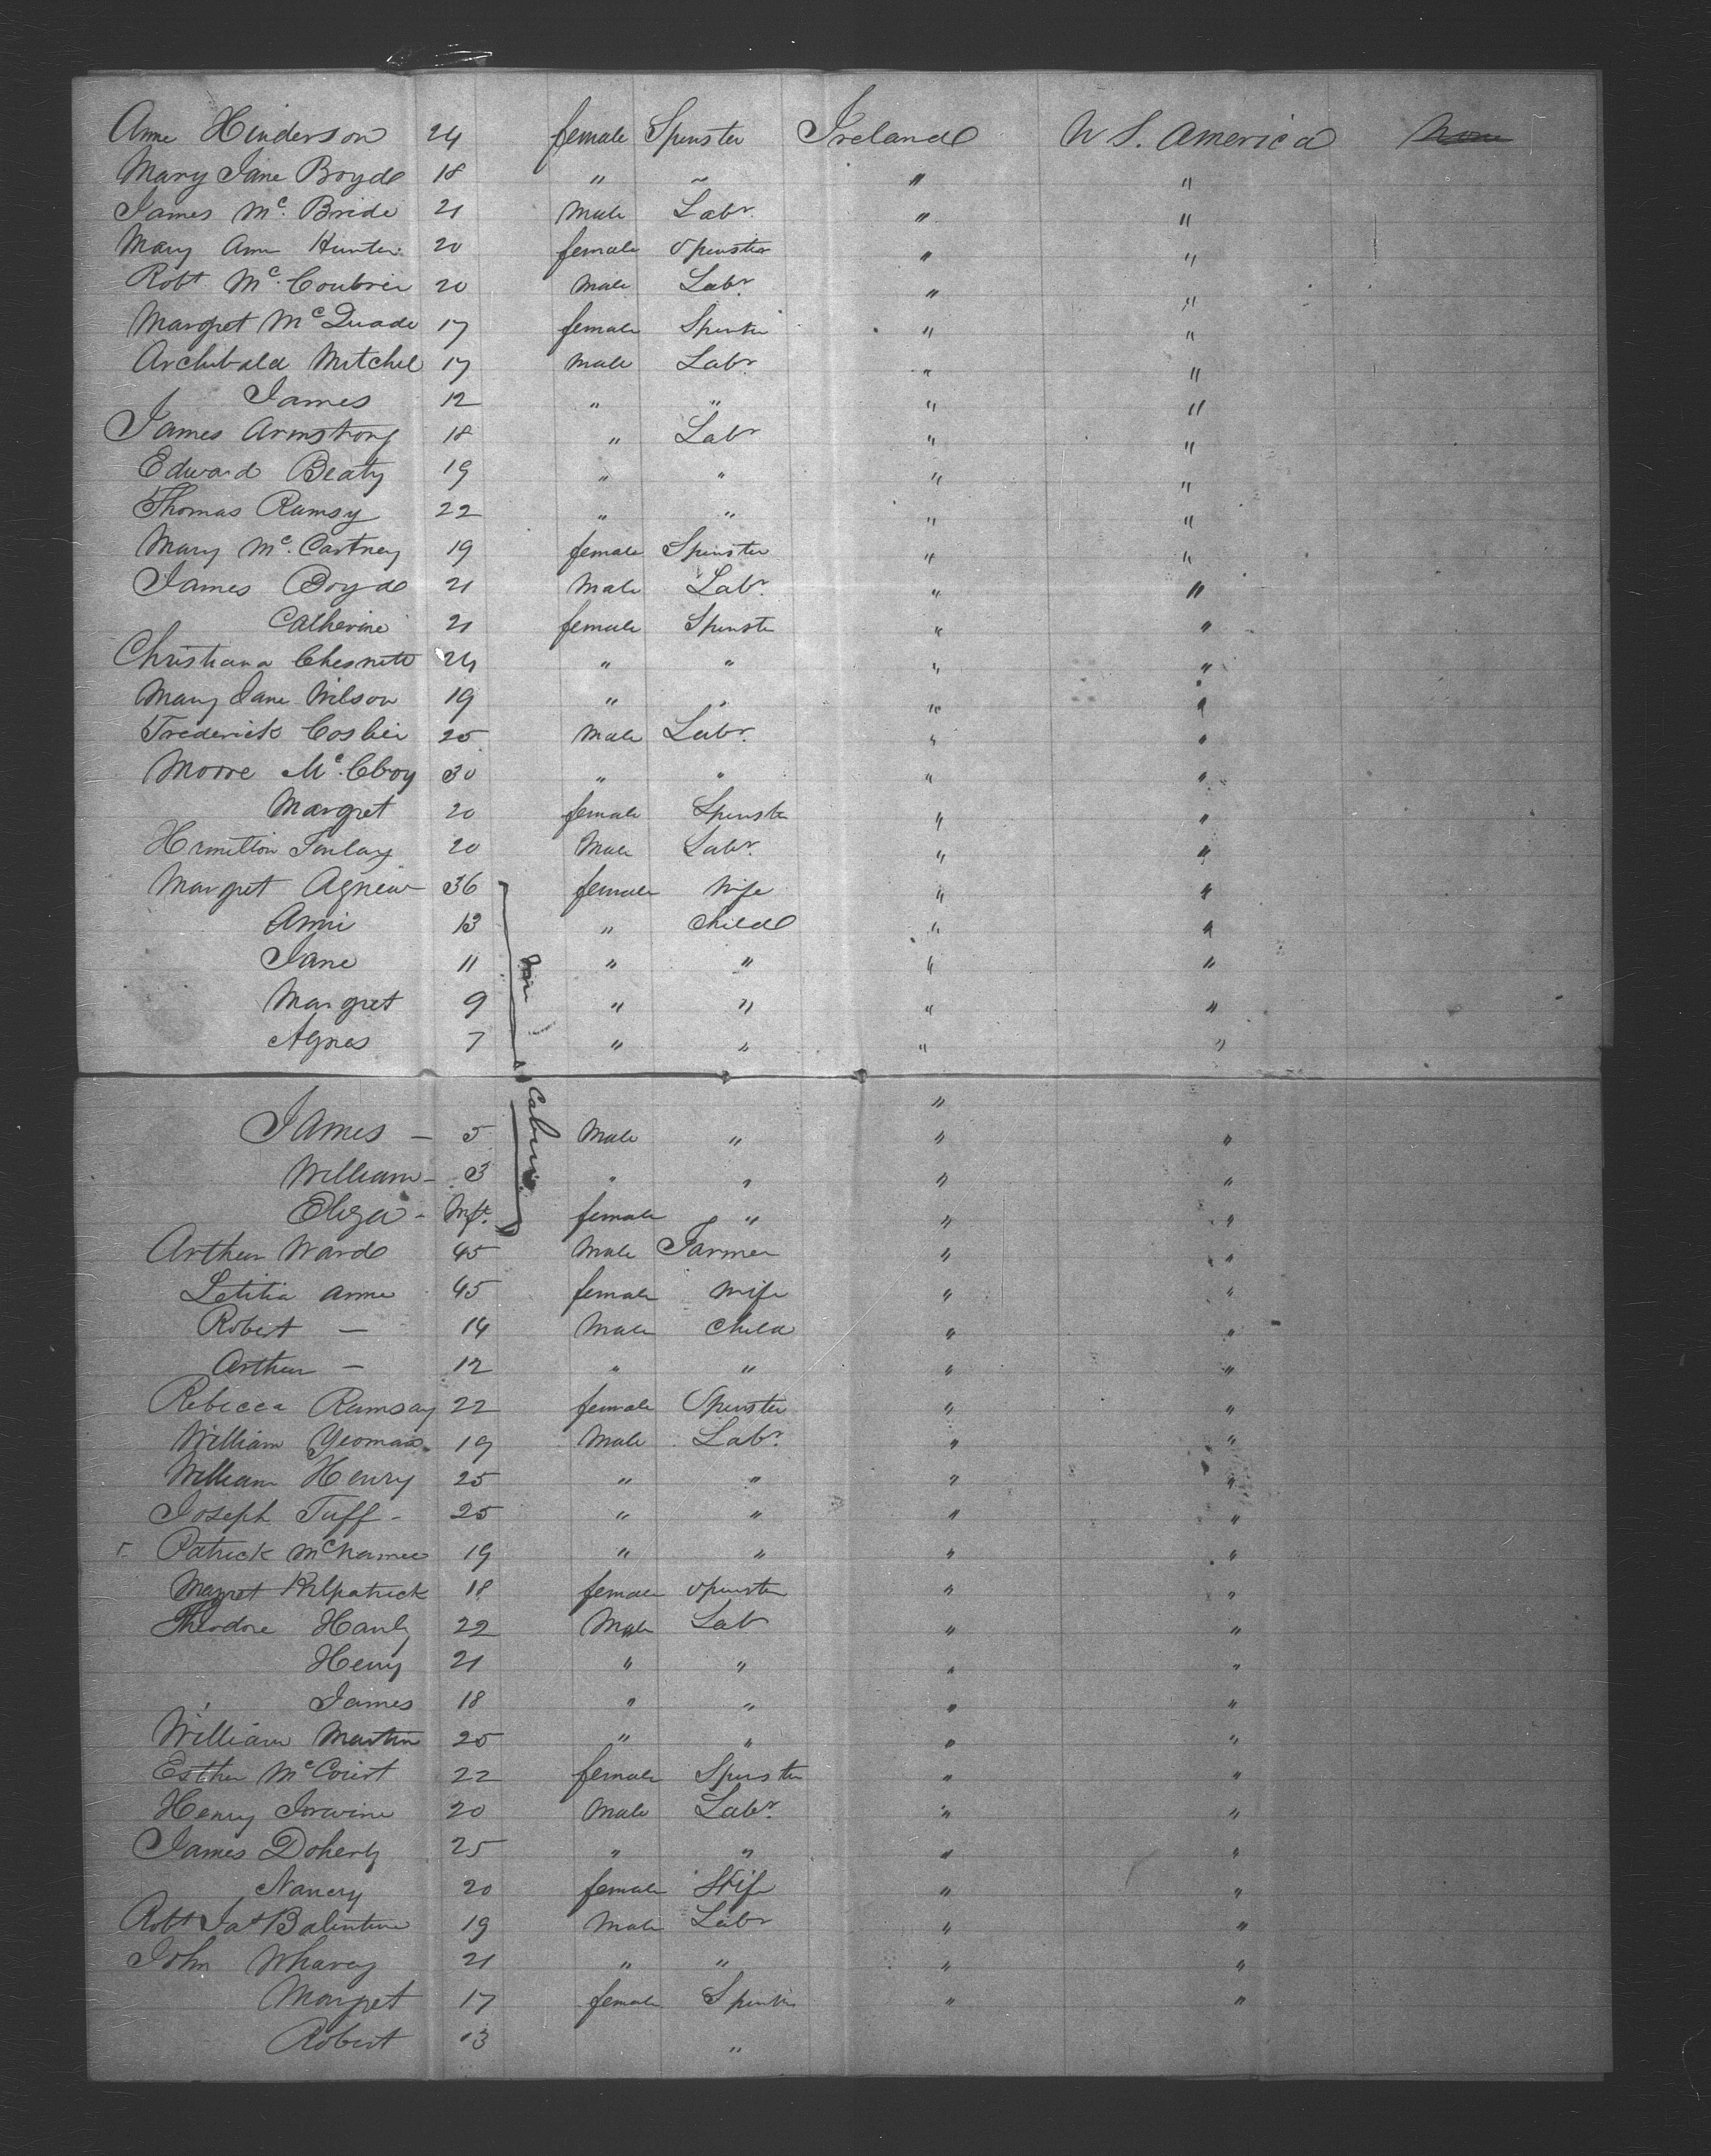 Anne Henderson 24 female Spinster Ireland U S. America None
Mary Jane Boyd 18 " ~ " "
James Mc. Bride 21 Male Labr. " "
Mary Ann Hunter 20 female Spinster " "
Robt Mc. 20 Male Labr. " "
Margret McQuade 17 female Spinster " "
Archibald Mitchel 17 Male Labr. " "
James 12 " " " "
James Armstrong 18 " Labr " "
Edward Beaty 19 " " " "
Thomas Ramsy 22 " " " "
Mary Mc. Cartney 19 female Spinster " "
James Boyd 21 Male Labr. " "
Catherine 21 female Spinster " "
Christiana Chesnett 24 " " " "
Mary Jane Wilson 19 " " " "
Frederick Cosbie 25 Male Labr. " "
Moore Mc. Elroy 30 " " " "
Margret 20 female Spinster " "
Finlay 20 Male Labr. " "
Margret Agnew 36 female Wife " "
Anne 13 " Child " "
Jane 11 " " " "
Margret 9 " " " "
Agnes 7 " " " "
in Cabin
"
James — 5 Male " " "
William - 3 " " " "
Eliza - Inft. female " " "
Arthur Ward 45 Male Farmer " "
Letitia Anne 45 female Wife " "
Robert — 14 Male Child " "
Arthur — 12 " " " "
Rebecca Ramsay 22 female Spinster " "
William Yeoman 19 Male Labr. " "
William Henry 25 " " " "
Joseph Tuff - 25 " " " "
Patrick McNamee 19 " " " "
Magret Kilpatrick 18 female Spinster " "
Theodore Hanly 22 Male Lab " "
Henry 21 " " " "
James 18 " " " "
William Martin 25 " " " "
Esther McCourt 22 female Spinster " "
Henry Irwine 20 Male Labr. " "
James Doherty 25 " " " "
Nancy 20 female Wife " "
Robt Jas Balentine 19 Male Labr " "
John Wharey 21 " " " "
Margret 17 female Spinster " "
Robert 13 "